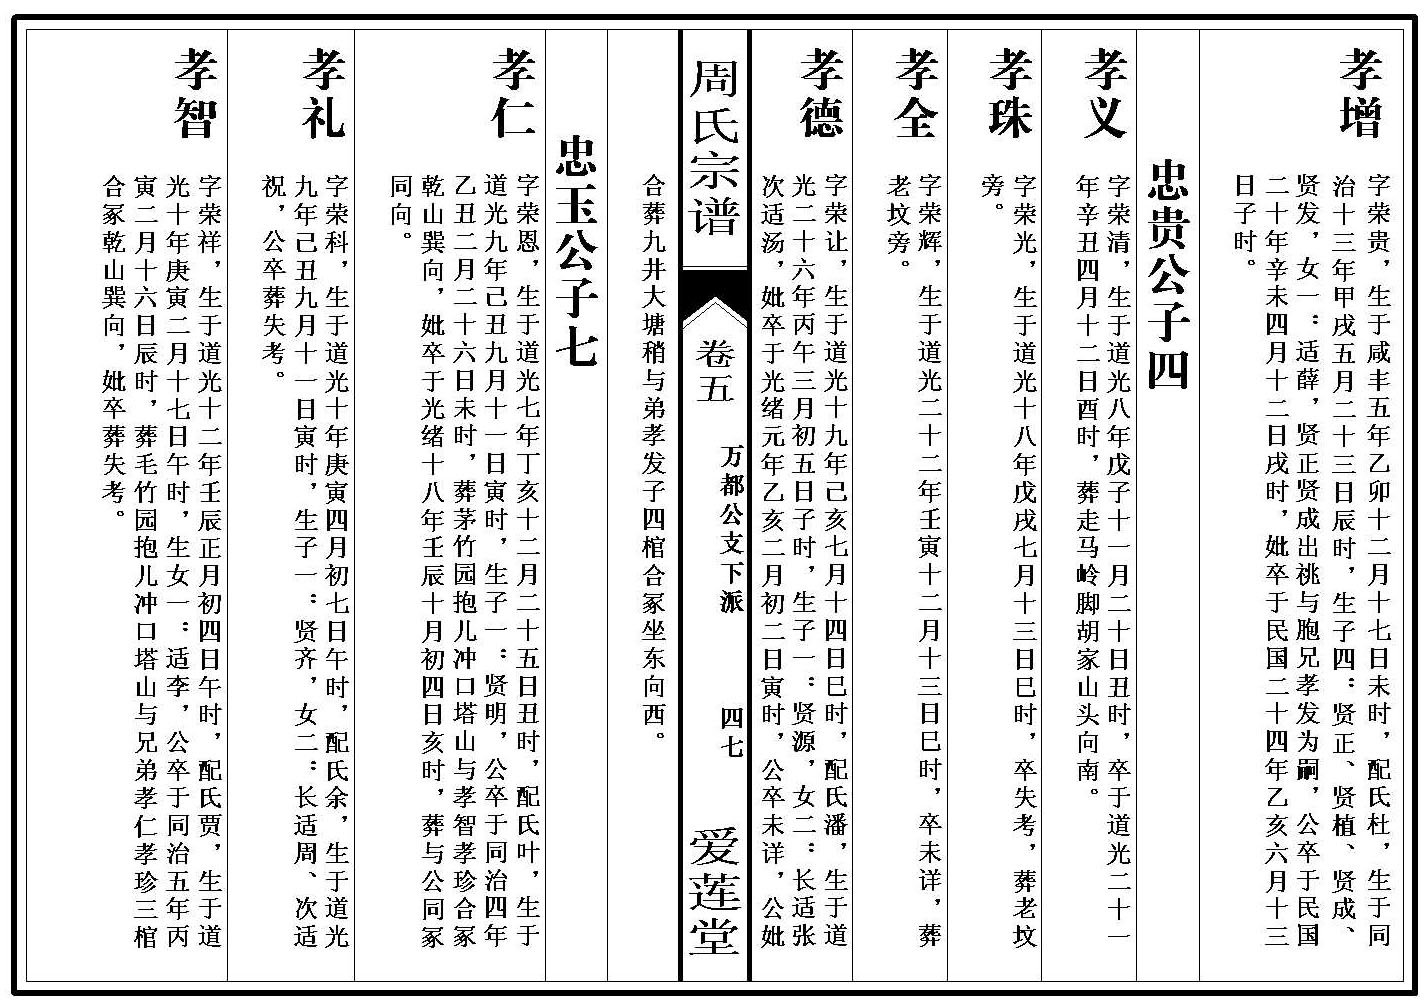 孝增
字荣贵，生于咸丰五年乙卯十二月十七日未时，配氏杜，生于同
治十三年甲戌五月二十三日辰时，生子四：贤正、贤植、贤成、
贤发，女一：适薛，贤正贤成出祧与胞兄孝发为嗣，公卒于民国
二十年辛未四月十二日戌时，妣卒于民国二十四年乙亥六月十三
日子时。
忠贵公子四
孝义
字荣清，生于道光八年戊子十一月二十日丑时，卒于道光二十一
年辛丑四月十二日酉时，葬走马岭脚胡家山头向南。
孝珠
字荣光，生于道光十八年戊戌七月十三日巳时，卒失考，葬老坟
旁。
孝全
字荣辉，生于道光二十二年壬寅十二月十三日巳时，卒未详，葬
老坟旁。
孝德
字荣让，生于道光十九年己亥七月十四日巳时，配氏潘，生于道
光二十六年丙午三月初五日子时，生子一：贤源，女二：长适张
次适汤，妣卒于光绪元年乙亥二月初二日寅时，公卒未详，公妣
周氏宗谱
卷五
万都公支下派
四七
爱莲堂
合葬九井大塘稍与弟孝发子四棺合冢坐东向西。
忠玉公子七
孝仁
字荣恩，生于道光七年丁亥十二月二十五日丑时，配氏叶，生于
道光九年己丑九月十一日寅时，生子一：贤明，公卒于同治四年
乙丑二月二十六日未时，葬茅竹园抱儿冲口塔山与孝智孝珍合冢
乾山巽向，妣卒于光绪十八年壬辰十月初四日亥时，葬与公同冢
同向。
孝礼
字荣科，生于道光十年庚寅四月初七日午时，配氏余，生于道光
九年己丑九月十一日寅时，生子一：贤齐，女二：长适周、次适
祝，公卒葬失考。
孝智
字荣祥，生于道光十二年壬辰正月初四日午时，配氏贾，生于道
光十年庚寅二月十七日午时，生女一：适李，公卒于同治五年丙
寅二月十六日辰时，葬毛竹园抱儿冲口塔山与兄弟孝仁孝珍三棺
合冢乾山巽向，妣卒葬失考。